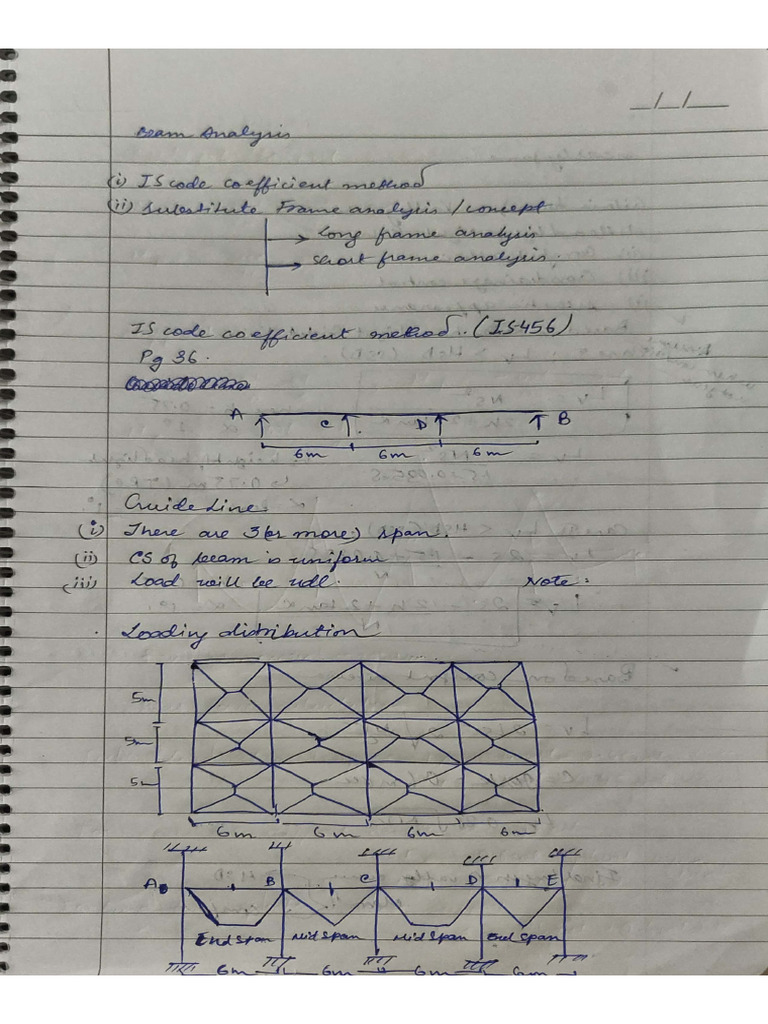 _/_/_
Beam Analysis
(i) IS code coefficient method
(ii) Substitute Frame analysis / concept
Long frame analysis
Short frame analysis.
IS code coefficient method.. (IS456)
Pg 36.
A C D B
6m 6m 6m
Guide Line
(i) There are 3(or more) span.
(ii) CS of beam is uniform
(iii) Load will be udl. Note:
Loading distribution
5m
5m
5m
6m 6m 6m 6m
A B C D E
End span Mid span Mid span End span
6m 6m 6m 6m